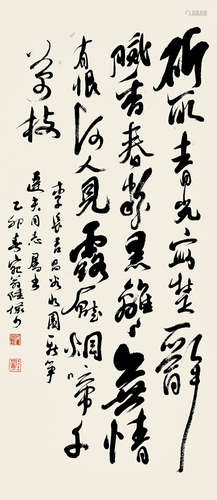 斫取青光寫楚辭
膩香春粉黑離々無情
有恨何人見露壓烟啼千
萬枝
李長吉昌谷北園新筍
同志屬書
乙卯春陸儼少